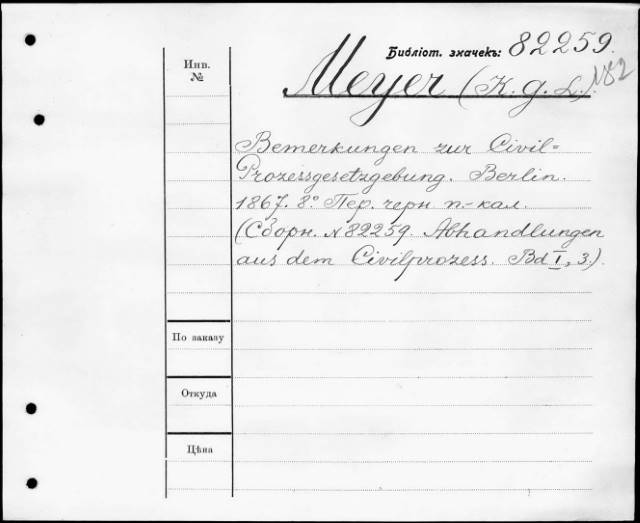 Библіот. значекъ: 82259.
Инв. №
Meyer (K. g. L.) N82
Bemerkungen zur Civil=
Prozessgesetzgebung. Berlin.
1867. 8° Пер. черн п.-кал.
(Сборн. N 82259. Abhandlungen
aus dem Civilprozess. Bd I, 3.)
По заказу
Откуда
Цѣна